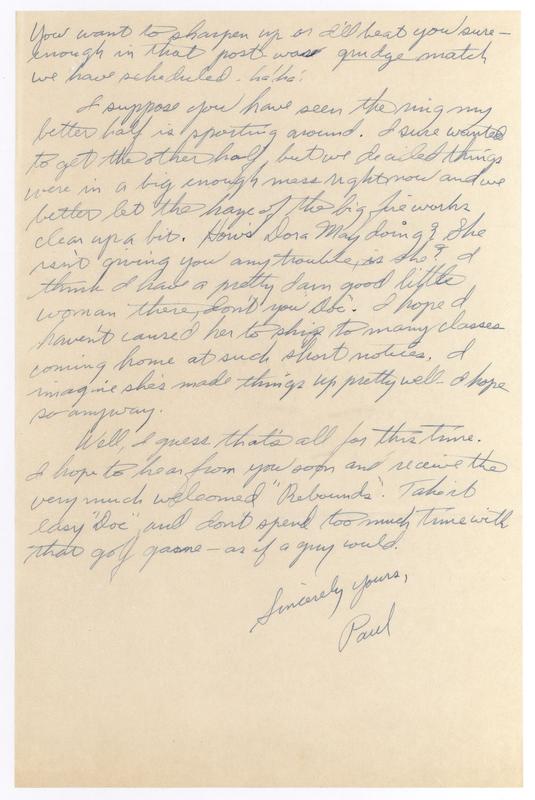 You want to sharpen up or I'll beat you sure-
enough in that post-war grudge match
we have scheduled. ha! ha!
I suppose you have seen the ring my
better half is sporting around. I sure wanted
to get the other half, but we decided things
were in a big enough mess right now and we
better let the haze of the big fireworks
clear up a bit. How's Dora May doing? She
isn't giving you any trouble, is she? I
think I have a pretty darn good little
woman there, don't you "Doc". I hope I
haven't caused her to skip to many classes
coming home at such short notices. I
imagine she's made things up pretty well - I hope
so anyway.
Well, I guess that's all for this time.
I hope to hear from you soon and receive the
very much welcomed "Rebounds". Take it
easy "Doc" and don't spend too much time with
that golf game - as if a guy could.
Sincerely yours,
Paul